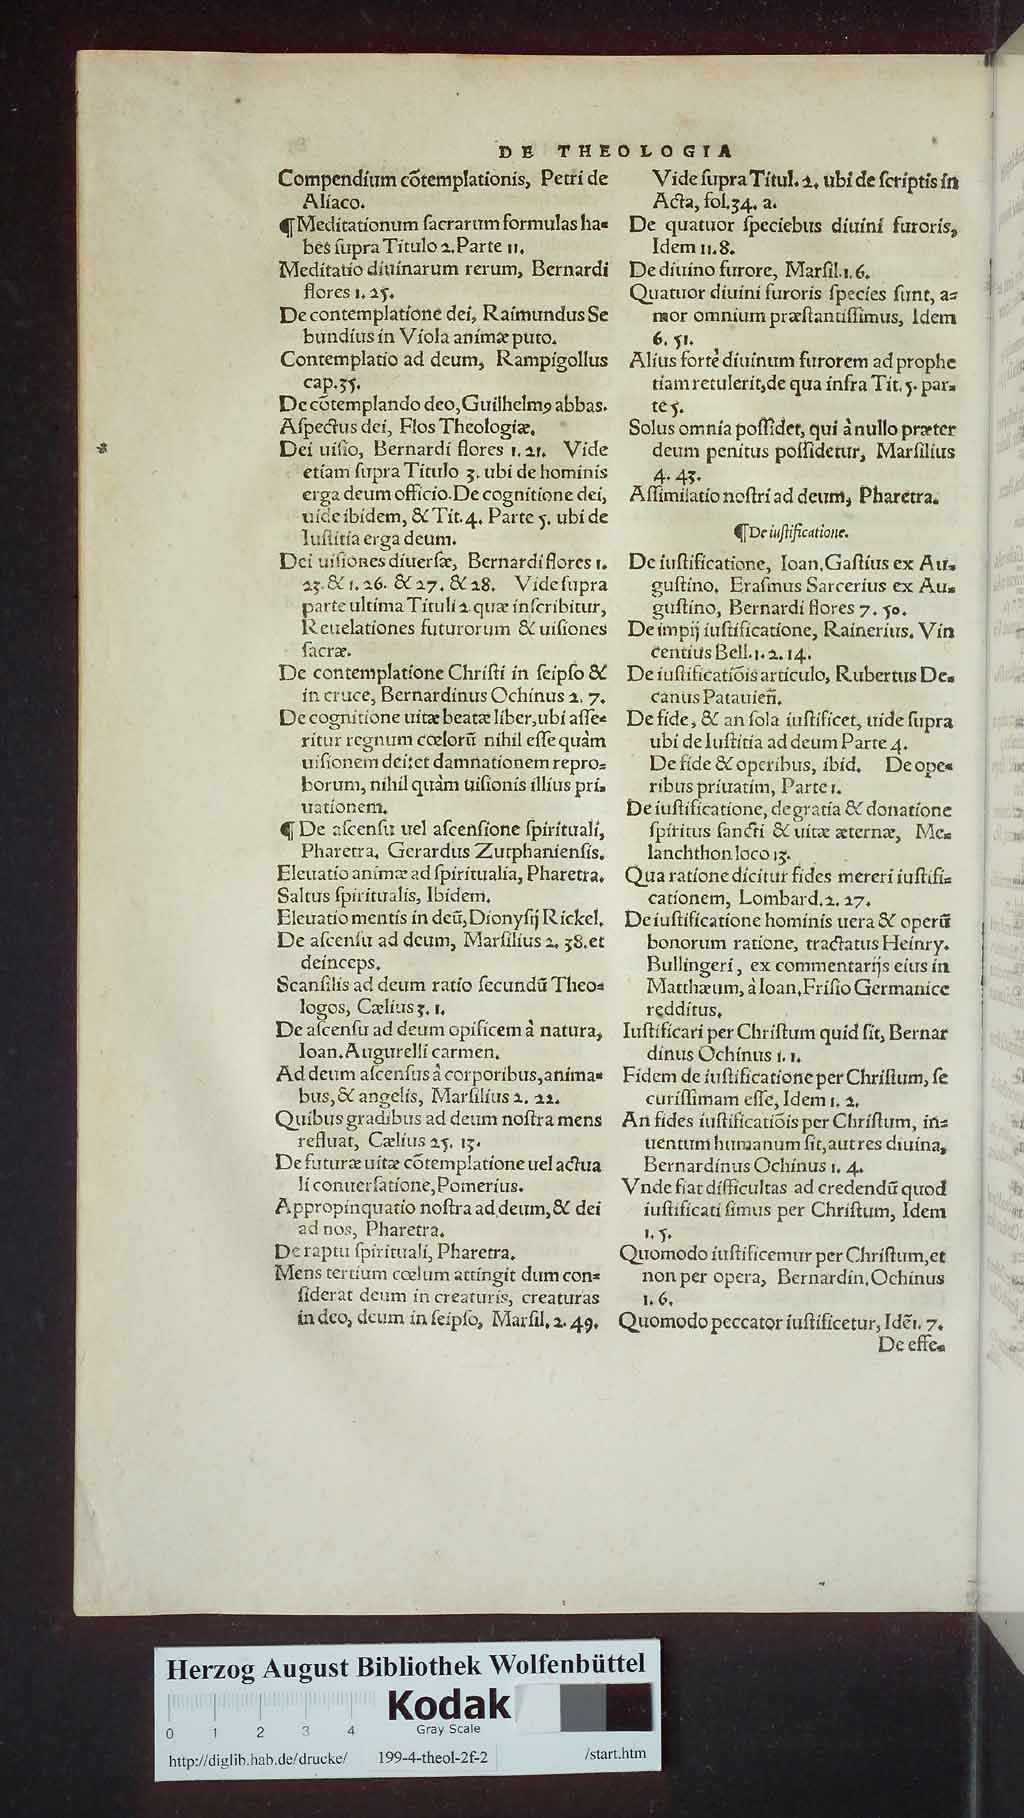 DE THEOLOGIA
Compendium cõtemplationis, Petri de
Aliaco.
¶ Meditationum ſacrarum formulas ha-
bes ſupra Titulo 2. Parte 11.
Meditatio diuinarum rerum, Bernardi
flores 1. 25.
De contemplatione dei, Raimundus Se
bundius in Viola animæ puto.
Contemplatio ad deum, Rampigollus
cap. 35.
De cõtemplando deo, Guilhelmꝰ abbas.
Aſpectus dei, Flos Theologiæ.
Dei uiſio, Bernardi flores 1. 21. Vide
etiam ſupra Titulo 3. ubi de hominis
erga deum officio. De cognitione dei,
uide ibidem, & Tit. 4. Parte 5. ubi de
Iuſtitia erga deum.
Dei uiſiones diuerſæ, Bernardi flores 1.
23. & 1. 26. & 27. & 28. Vide ſupra
parte ultima Tituli 2 quæ inſcribitur,
Reuelationes futurorum & uiſiones
ſacræ.
De contemplatione Chriſti in ſeipſo &
in cruce, Bernardinus Ochinus 2. 7.
De cognitione uitæ beatæ liber, ubi aſſe-
ritur regnum cœlorũ nihil eſſe quàm
uiſionem dei: et damnationem repro-
borum, nihil quàm uiſionis illius pri-
uationem.
¶ De aſcenſu uel aſcenſione ſpirituali,
Pharetra. Gerardus Zutphanienſis.
Eleuatio animæ ad ſpiritualia, Pharetra.
Saltus ſpiritualis, Ibidem.
Eleuatio mentis in deũ, Dionyſij Rickel.
De aſcenſu ad deum, Marſilius 2. 38. et
deinceps.
Scanſilis ad deum ratio ſecundũ Theo-
logos, Cælius 3. 1.
De aſcenſu ad deum opificem à natura,
Ioan. Augurelli carmen.
Ad deum aſcenſus à corporibus, anima-
bus, & angelis, Marſilius 2. 22.
Quibus gradibus ad deum noſtra mens
refluat, Cælius 25. 13.
De futuræ uitæ cõtemplatione uel actua
li conuerſatione, Pomerius.
Appropinquatio noſtra ad deum, & dei
ad nos, Pharetra.
De raptu ſpirituali, Pharetra.
Mens tertium cœlum attingit dum con-
ſiderat deum in creaturis, creaturas
in deo, deum in ſeipſo, Marſil. 2. 49.
Vide ſupra Titul. 2. ubi de ſcriptis in
Acta, fol. 34. a.
De quatuor ſpeciebus diuini furoris,
Idem 11. 8.
De diuino furore, Marſil. 1. 6.
Quatuor diuini furoris ſpecies ſunt, a-
mor omnium præſtantiſſimus, Idem
6. 51.
Alius fortè diuinum furorem ad prophe
tiam retulerit, de qua infra Tit. 5. par-
te 5.
Solus omnia poſſidet, qui à nullo præter
deum penitus poſſidetur, Marſilius
4. 43.
Aſſimilatio noſtri ad deum, Pharetra.
¶ De iuſtificatione.
De iuſtificatione, Ioan. Gaſtius ex Au-
guſtino. Eraſmus Sarcerius ex Au-
guſtino, Bernardi flores 7. 50.
De impij iuſtificatione, Rainerius. Vin
centius Bell. 1. 2. 14.
De iuſtificatiõis articulo, Rubertus De-
canus Patauieñ.
De fide, & an ſola iuſtificet, uide ſupra
ubi de Iuſtitia ad deum Parte 4.
De fide & operibus, ibid. De ope-
ribus priuatim, Parte 1.
De iuſtificatione, de gratia & donatione
ſpiritus ſancti & uitæ æternæ, Me-
lanchthon loco 13.
Qua ratione dicitur fides mereri iuſtifi-
cationem, Lombard. 2. 27.
De iuſtificatione hominis uera & operũ
bonorum ratione, tractatus Heinry.
Bullingeri, ex commentarijs eius in
Matthæum, à Ioan. Friſio Germanice
redditus.
Iuſtificari per Chriſtum quid ſit, Bernar
dinus Ochinus 1. 1.
Fidem de iuſtificatione per Chriſtum, ſe
curiſſimam eſſe, Idem 1. 2.
An fides iuſtificatiõis per Chriſtum, in-
uentum humanum ſit, aut res diuina,
Bernardinus Ochinus 1. 4.
Vnde fiat difficultas ad credendũ quod
iuſtificati ſimus per Chriſtum, Idem
1. 5.
Quomodo iuſtificemur per Chriſtum, et
non per opera, Bernardin. Ochinus
1. 6.
Quomodo peccator iuſtificetur, Idẽ 1. 7.
De effe-
Herzog August Bibliothek Wolfenbüttel
Kodak
Gray Scale
0 1 2 3 4
http://diglib.hab.de/drucke/ 199-4-theol-2f-2 /start.htm